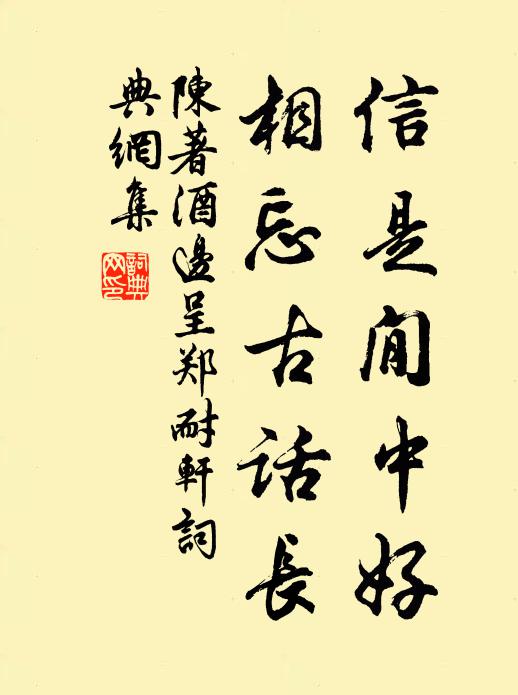 信是閒中好
相忘古话長
陳著酒邊呈郑耐軒詞
典網集
詞典
网印